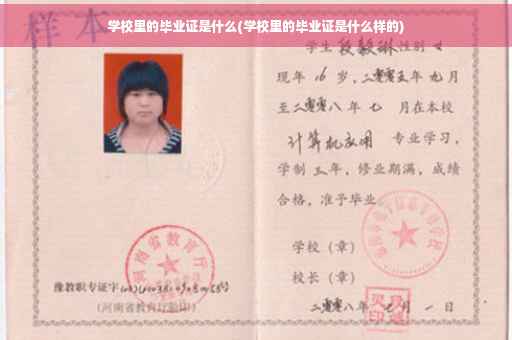 样本
学校里的毕业证是什么(学校里的毕业证是什么样的)
学生段毅琳性别女
现年16岁，二零零五年九月
至二零零八年七月在本校
计算机应用专业学习，
学制三年，修业期满，成绩
合格，准予毕业
学校（章）
校长（章）
二零零八年七月一日
河南省教育厅
豫教职专证字
号
(河南省教育厅验印)